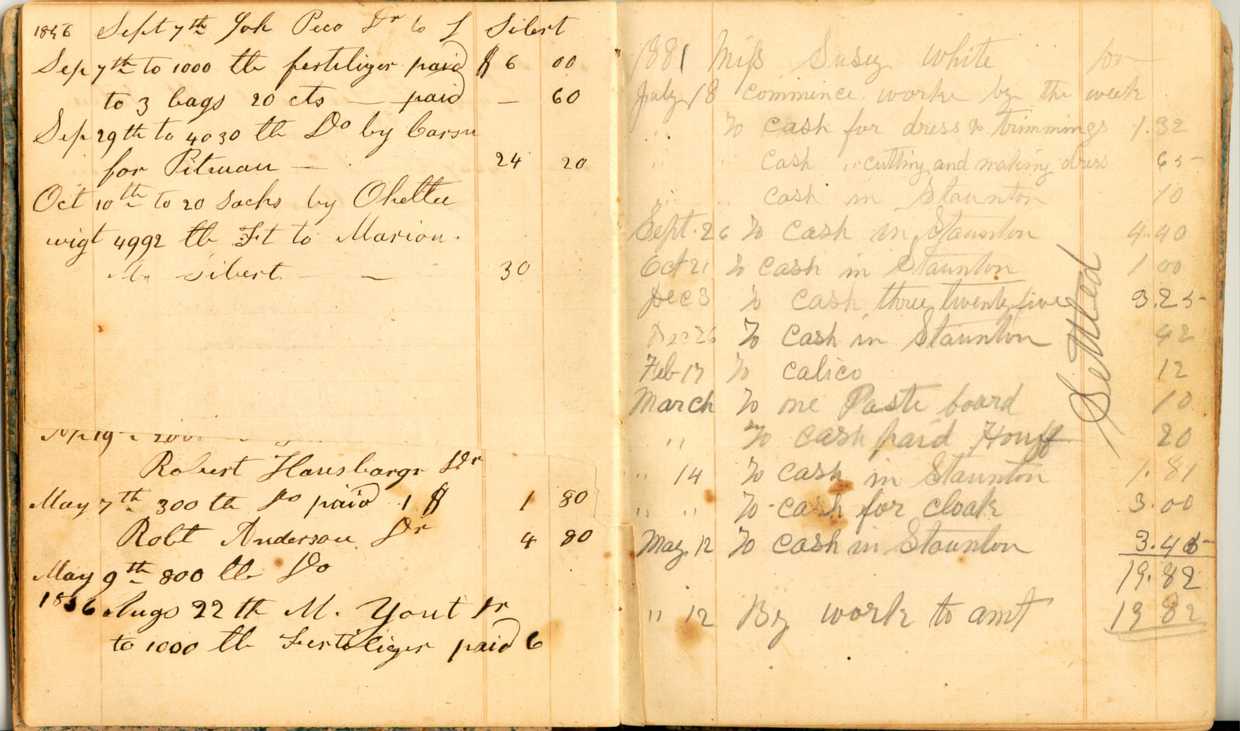 Sept 7th Joh Peco Dr to L Sibert
Sep 7th to 1000 lb fertilizer paid $ 6 00
to 3 bags 20 cts — paid — 60
Sep 29th to 4030 lb Do by
for Pitman — 24 20
Oct 10th to 20 Sacks by
wigt 4992 lb Ft to Marion.
M. Sibert — — 30
Robert Hansbargr Dr
May 7th 300 lb Do paid 1 $ 1 80
Robt Anderson Dr 4 80
May 9th 800 lb Do
Augs 22 th M. Yout Dr
to 1000 lb Fertilizer paid 6
1881 Miss Susey White
July 18 commence worke by the week
To cash for dress & trimmings 1.32
" " Cash " cutting and making dress 65
" " cash in Staunton 10
Sept. 26 To cash in Staunton 4.40
Oct 21 To cash in Staunton 1 00
Dec 3 To cash three twenty five 3.25
Dec 26 To cash in Staunton 42
Feb 17 To calico 12
March To one Paste board 10
" To cash paid Houff 20
" 14 To cash in Staunton 1.81
" " To cash for cloak 3.00
May 12 To cash in Staunton 3.45
19.82
" 12 By work to amt 19 82
Settled